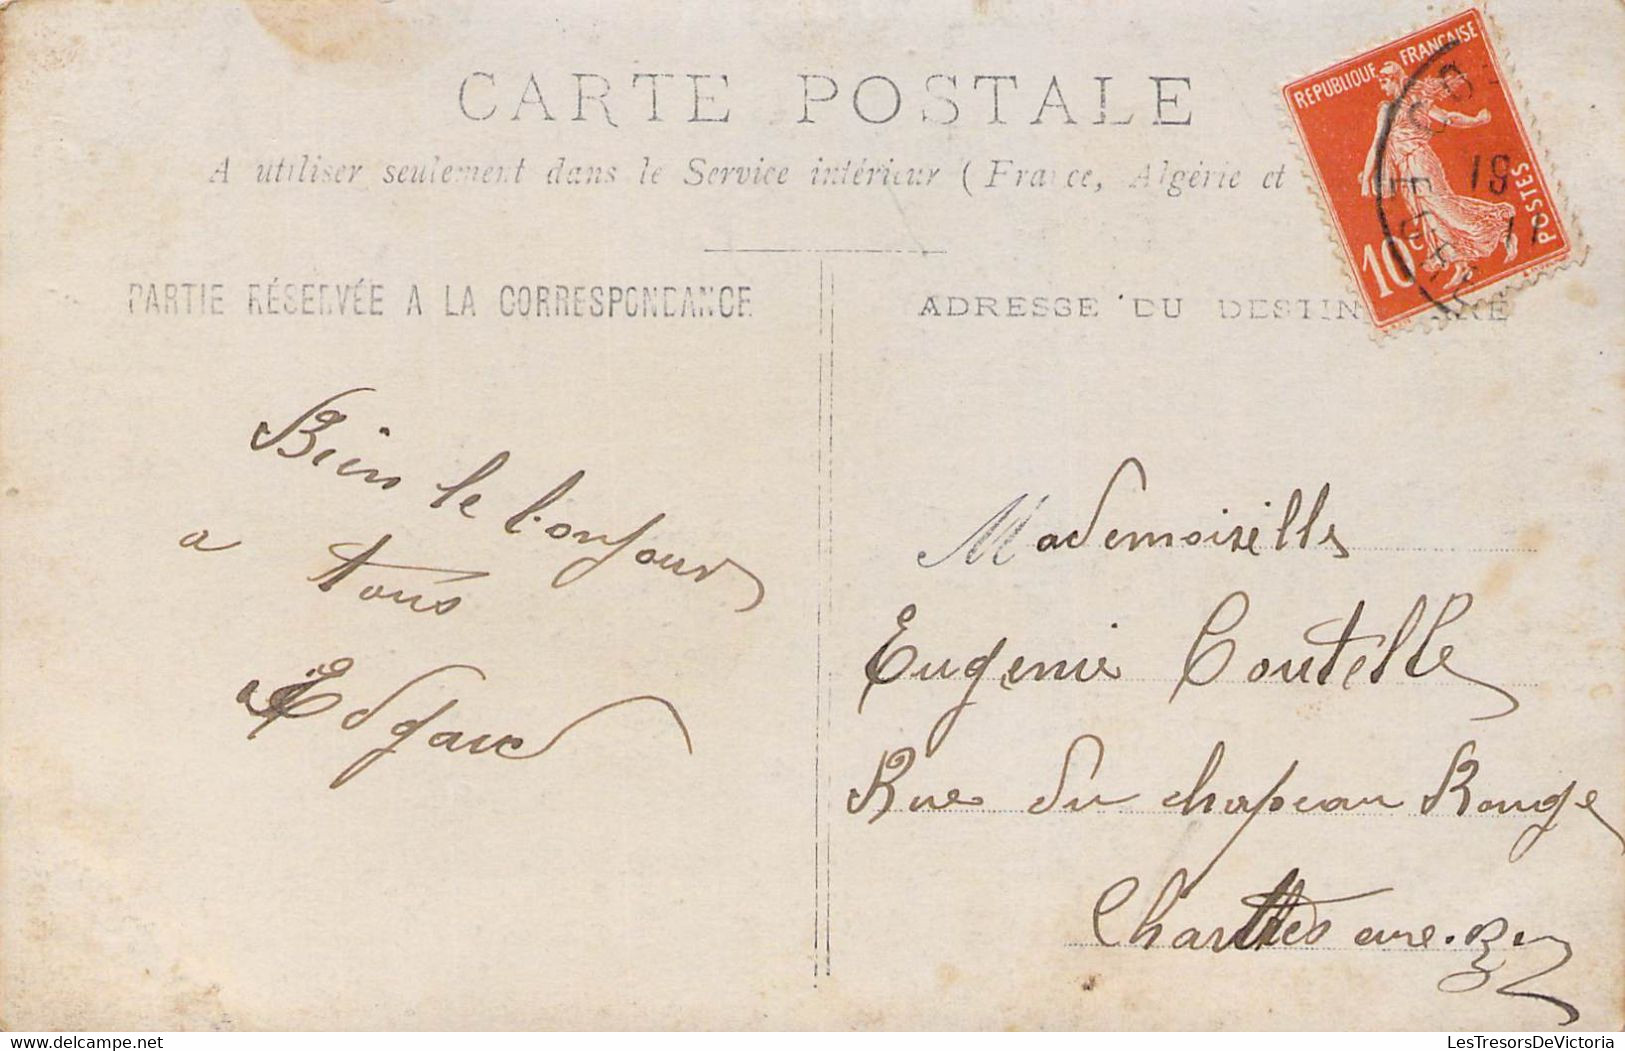 CARTE POSTALE
A utiliser seulement dans le Service intérieur (France, Algérie et
REPUBLIQUE FRANÇAISE
10c
POSTES
PARTIE RÉSERVÉE A LA CORRESPONDANCE
ADRESSE DU DESTIN RE
Bien le bonjour
a tous
Edgard
Mademoiselle
Eugenie Coutelle
Rue du chapeau Rouge
Chartres eure
Delcampe.net
LesTresorsDeVictoria